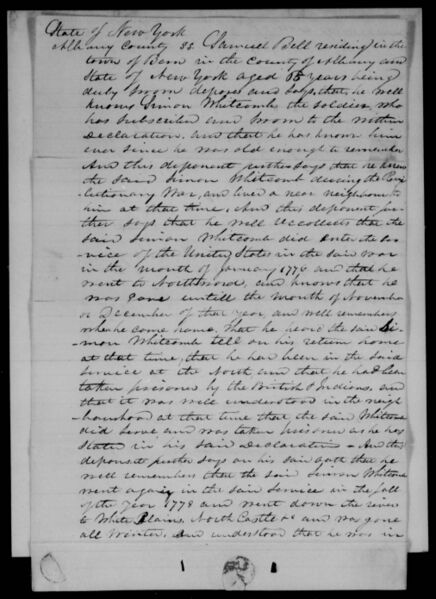 State of New York
Albany County SS Samuel Bell residing in the
town of Bern in the County of Albany and
State of New York aged years being
duly sworn deposes and says, that he well
knows Simon Whitcomb the soldier who
has subscribed and sworn to the within
Declaration, and that he has known him
ever since he was old enough to remember
And this deponent further says that he knew
the said Simon Whitcomb during the Rev-
olutionary War, and lived a near neighbour to
him at that time. And this deponent fur-
ther says that he well recollects that the
said Simon Whitcomb did enter the ser-
vice of the United States in the said war
in the month of January 1776 and that he
went to Northward, and knows that he
was gone untill the month of November
or December of that year, and well remembers
when he come home, that he heard the said Si-
mon Whitcomb tell on his return home
at that time, that he has been in the said
service at the North and that he had been
taken prisoner by the British & Indians, and
that it was well understood in the neigh-
bourhood at that time that the said Whitcomb
did serve and was taken prisoner as he has
stated in his said Declaration. And this
deponent further says on his oath that he
well remembers that the said Simon Whitcomb
went again in the said service in the fall
of the year 1778 and went down the river
to White Plains, North Castle &c and was gone
all Winter, and understood that he was in